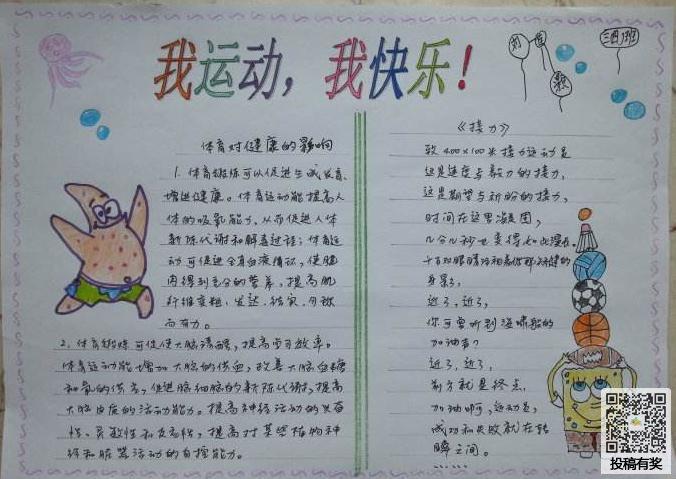 我运动，我快乐！
三班
体育对健康的影响
1. 体育锻炼可以促进生长发育、
增进健康。体育运动能提高人
体的吸氧能力，从而促进人体
新陈代谢和解毒过程；体育运
动可促进全身血液循环，使肌
肉得到充分的营养，提高肌
纤维变粗，发达、结实、匀称
而有力。
2. 体育锻炼可促使大脑清醒，提高学习效率。
体育运动能增加大脑的供血，改善大脑血糖
和氧的供应，促进脑细胞的新陈代谢，提高
大脑皮质的活动能力。提高神经活动的兴奋
性、灵敏性和反应性，提高对某些植物神
经和脏器活动的自控能力。
《接力》
致400×100米接力运动员
这是速度与毅力的接力，
这是期望与祈盼的接力，
时间在这里凝固，
几分几秒也变得如此漫长。
千百双眼睛注视着你那矫健的
身影，
近了，近了，
你可曾听到海啸般的
加油声？
近了，近了，
前方就是终点，
加油啊，运动员，
成功和失败就在转
瞬之间。
……
投稿有奖